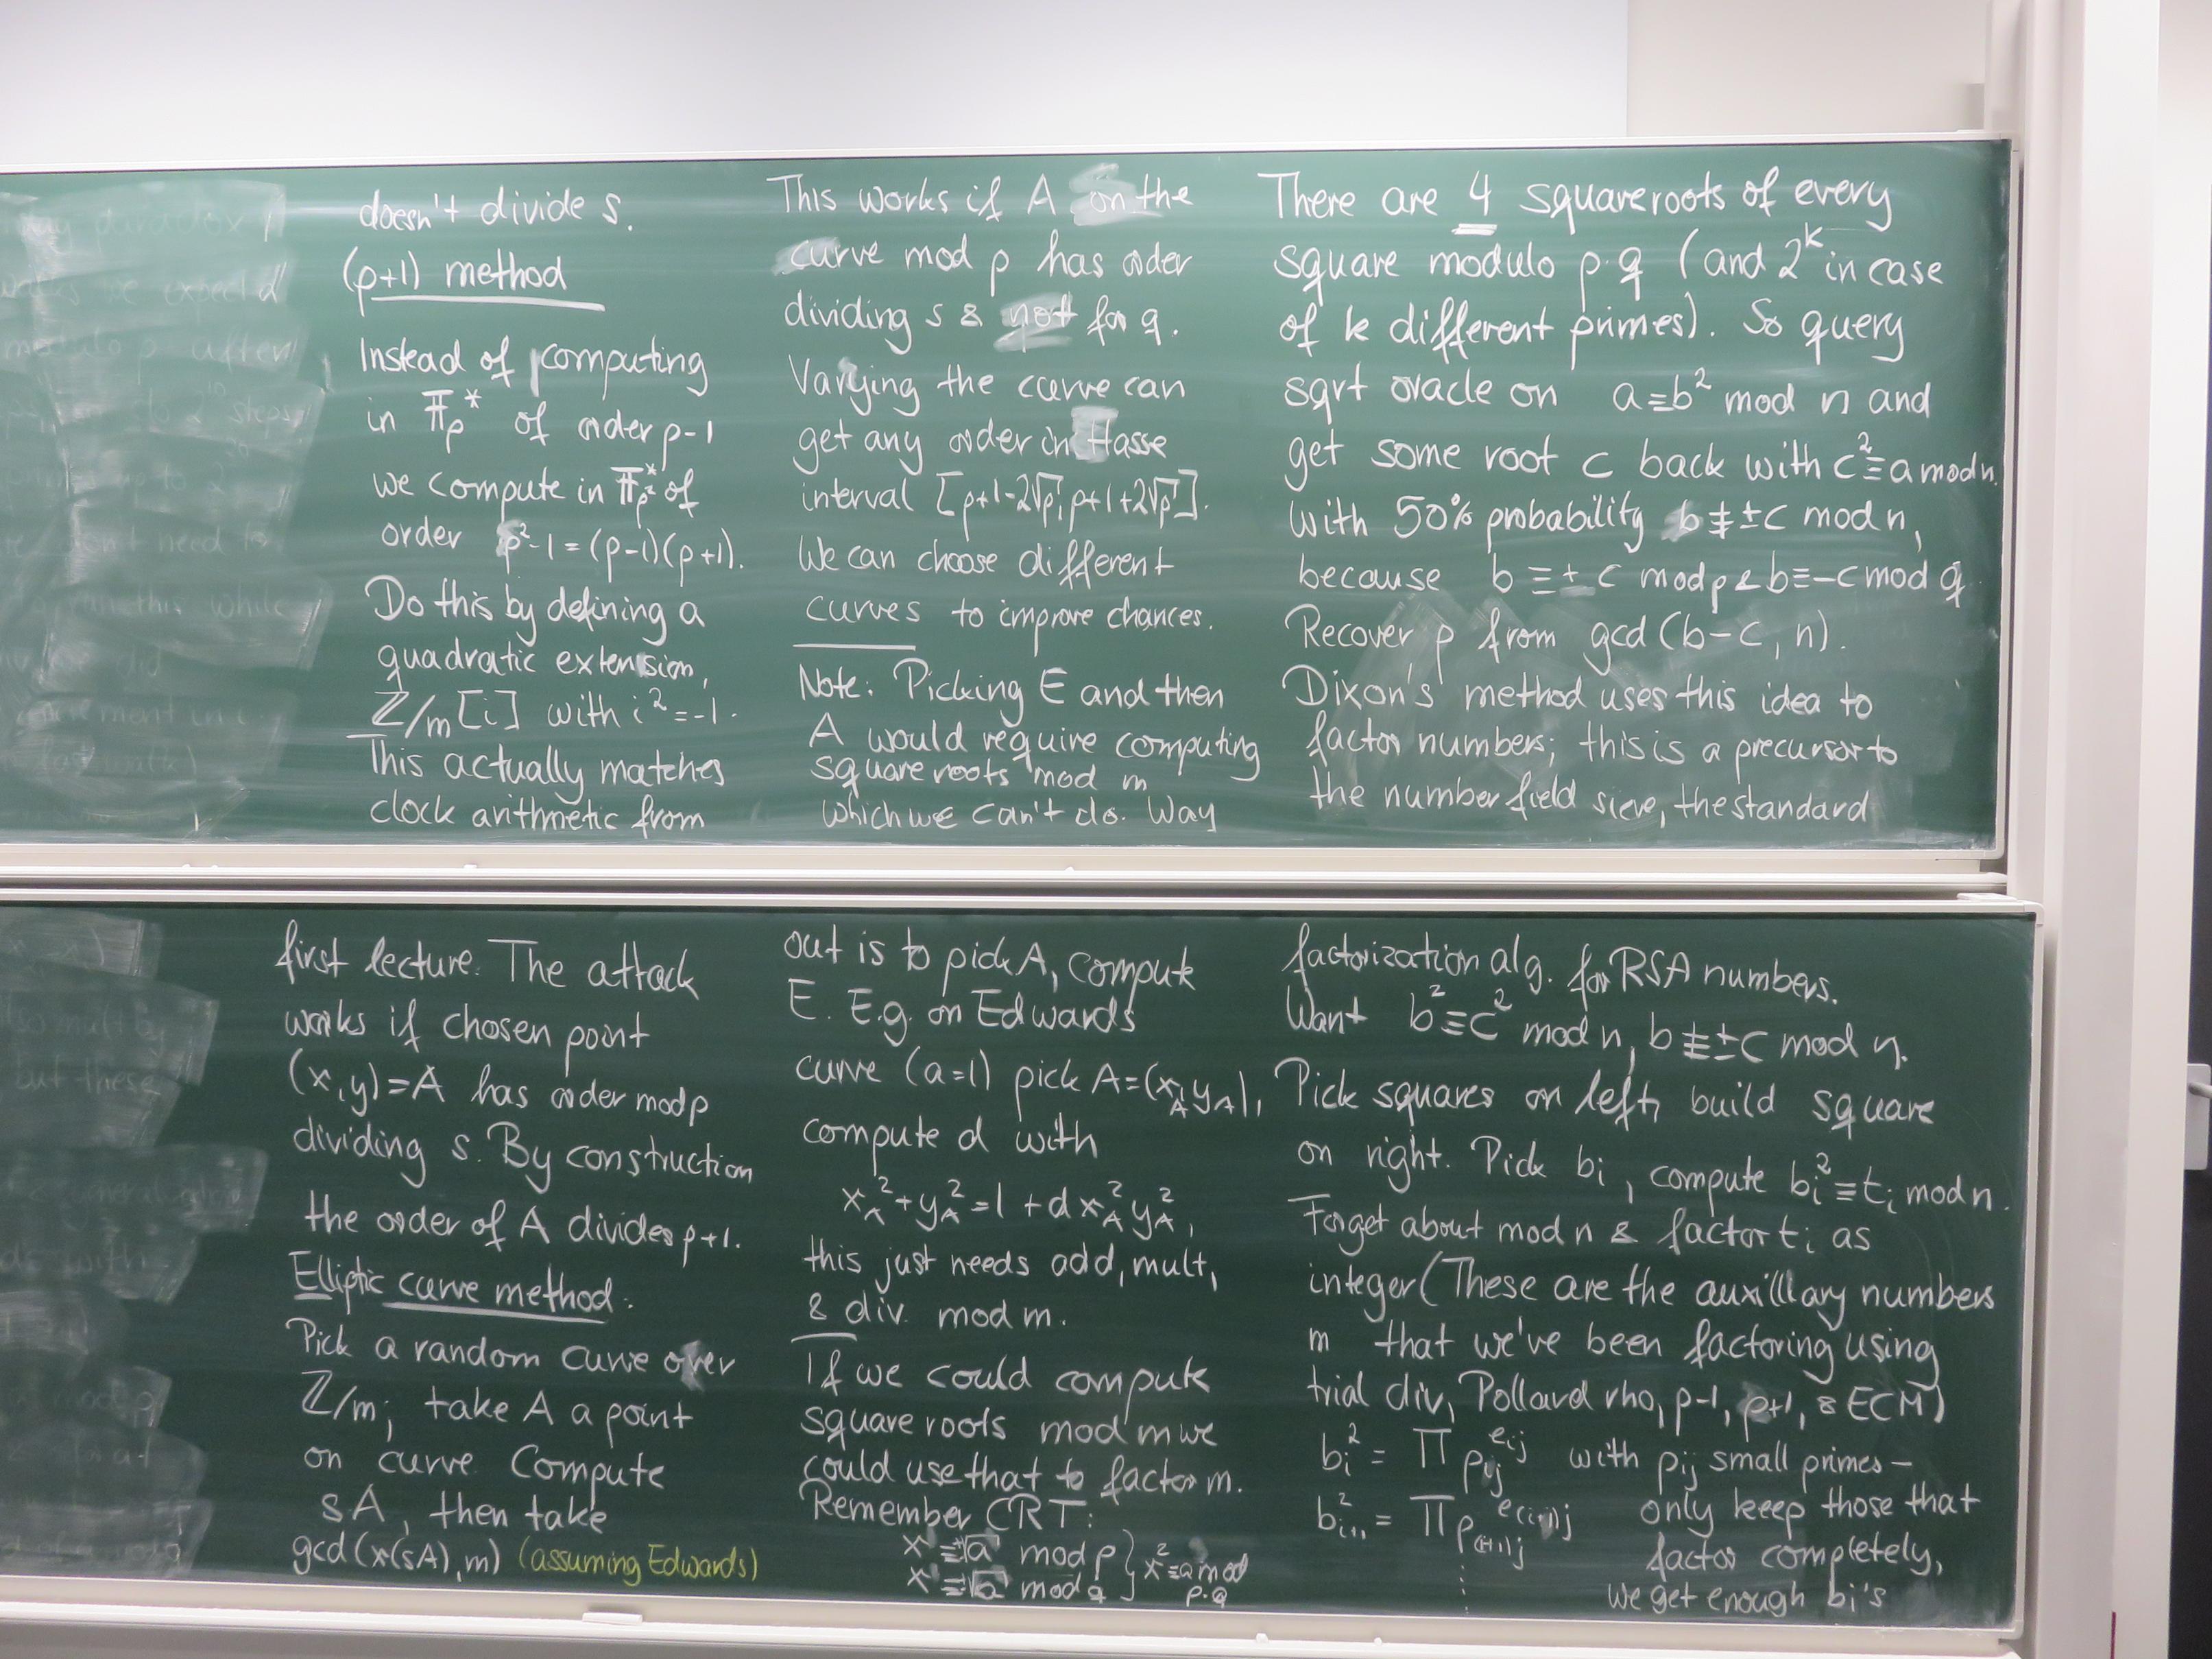 doesn't divide s.
(p+1) method
Instead of computing
in 𝔽p* of order p-1
we compute in 𝔽p²* of
order p²-1 = (p-1)(p+1).
Do this by defining a
quadratic extension,
ℤ/m[i] with i²=-1.
This actually matches
clock arithmetic from
first lecture. The attack
works if chosen point
(x,y)=A has order mod p
dividing s. By construction
the order of A divides p+1.
Elliptic curve method:
Pick a random curve over
ℤ/m; take A a point
on curve. Compute
sA, then take
gcd(x(sA),m) (assuming Edwards)
This works if A on the
curve mod p has order
dividing s & not for q.
Varying the curve can
get any order in Hasse
interval [p+1-2√p, p+1+2√p].
We can choose different
curves to improve chances.
Note: Picking E and then
A would require computing
square roots mod m
which we can't do. Way
out is to pick A, compute
E. E.g. on Edwards
curve (a=1) pick A=(x_A,y_A),
compute d with
x_A²+y_A²=1+dx_A²y_A²,
this just needs add, mult,
& div. mod m.
If we could compute
square roots mod m we
could use that to factor m.
Remember CRT:
x ≡ √a mod p } x²≡a mod
x ≡ √a mod q } p·q
There are 4 squareroots of every
square modulo p·q (and 2^k in case
of k different primes). So query
sqrt oracle on a≡b² mod n and
get some root c back with c²≡a mod n.
With 50% probability b≢±c mod n,
because b ≡ ± c mod p & b≡-c mod q
Recover p from gcd(b-c, n).
Dixon's method uses this idea to
factor numbers; this is a precursor to
the number field sieve, the standard
factorization alg. for RSA numbers.
Want b²≡c² mod n, b≢±c mod n.
Pick squares on left, build square
on right. Pick bi, compute bi²≡ti mod n.
Forget about mod n & factor ti as
integer (These are the auxilliary numbers
m that we've been factoring using
trial div, Pollard rho, p-1, p+1, & ECM)
bi² = ∏ pij^eij with pij small primes –
b²i+1 = ∏ p(i+1)j^e(i+1)j only keep those that
⋮ factor completely,
we get enough bi's